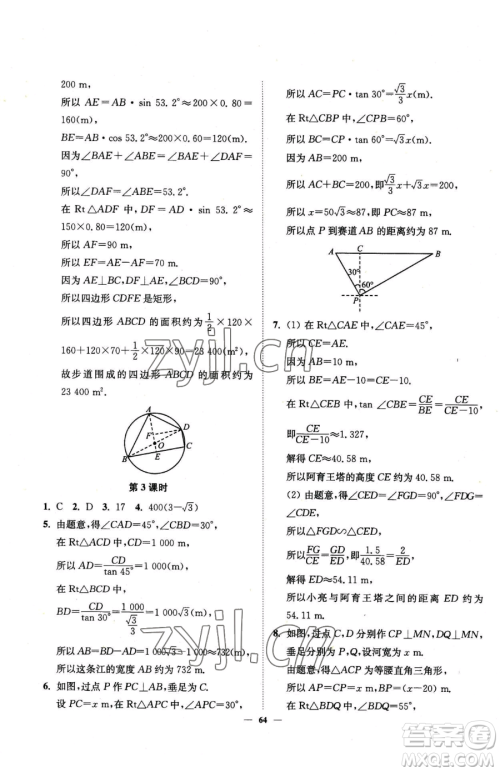 200 m,
所以 AE=AB·sin 53.2°≈200×0.80=
160(m),
BE=AB·cos 53.2°≈120(m).
因为∠BAE+∠ABE=∠BAE+∠DAF=
90°,
所以∠DAF=∠ABE=53.2°.
在 Rt△ADF 中,DF=AD·sin 53.2°≈
150×0.80=120(m).
所以 AF=90 m.
所以 EF=AE-AF=70 m.
易证四边形 CDFE 是矩形.
所以四边形 ABCD 的面积约为 1/2×120×
160+120×70+1/2×120×90=23 400(m²).
故步道围成的四边形 ABCD 的面积约为
23 400 m².
A
F
D
O
B
E
C
第 3 课时
1. C 2. D 3. 17 4. 400(3-√3)
5. 由题意,得∠CAD=45°,∠CBD=30°.
在 Rt△ACD 中,
AD=CD/tan 45°=1 000 m.
在 Rt△BCD 中,
BD=CD/tan 30°=1 000/(√3/3)=1 000√3(m).
所以 AB=BD-AD=1 000√3-1 000≈732(m).
所以这条江的宽度 AB 约为 732 m.
6. 如图,过点 P 作 PC⊥AB,垂足为 C.
设 PC=x m,在 Rt△APC 中,∠APC=30°,
所以 AC=PC·tan 30°=√3/3 x(m).
在 Rt△CBP 中,∠CPB=60°,
所以 BC=PC·tan 60°=√3x(m).
因为 AB=200 m,
所以 AC+BC=200,即√3/3 x+√3x=200.
所以 x=50√3≈87,即 PC≈87 m.
所以点 P 到赛道 AB 的距离约为 87 m.
A C B
30°
60°
P
7. (1) 在 Rt△CAE 中,∠CAE=45°,
所以 CE=AE.
因为 AB=10 m,
所以 BE=AE-10=CE-10.
在 Rt△CEB 中,tan ∠CBE=CE/BE=CE/(CE-10),
即 CE/(CE-10)≈1.327,
解得 CE≈40.58 m.
所以阿育王塔的高度 CE 约为 40.58 m.
(2) 由题意,得∠FGD=90°=∠CED,∠FDG=
∠CDE,
所以△FGD∽△CED.
所以 FG/CE=GD/ED,即 1.5/40.58=2/ED,
解得 ED≈54.11 m.
所以小亮与阿育王塔之间的距离 ED 约为
54.11 m.
8. 如图,过点 C,D 分别作 CP⊥MN,DQ⊥MN,
垂足分别为 P,Q,设河宽为 x m.
由题意,知△ACP 为等腰直角三角形,
所以 AP=CP=x m,BP=(x-20)m.
在 Rt△BDQ 中,∠BDQ=30°,
64
zyjl.cn
zyjl.cn